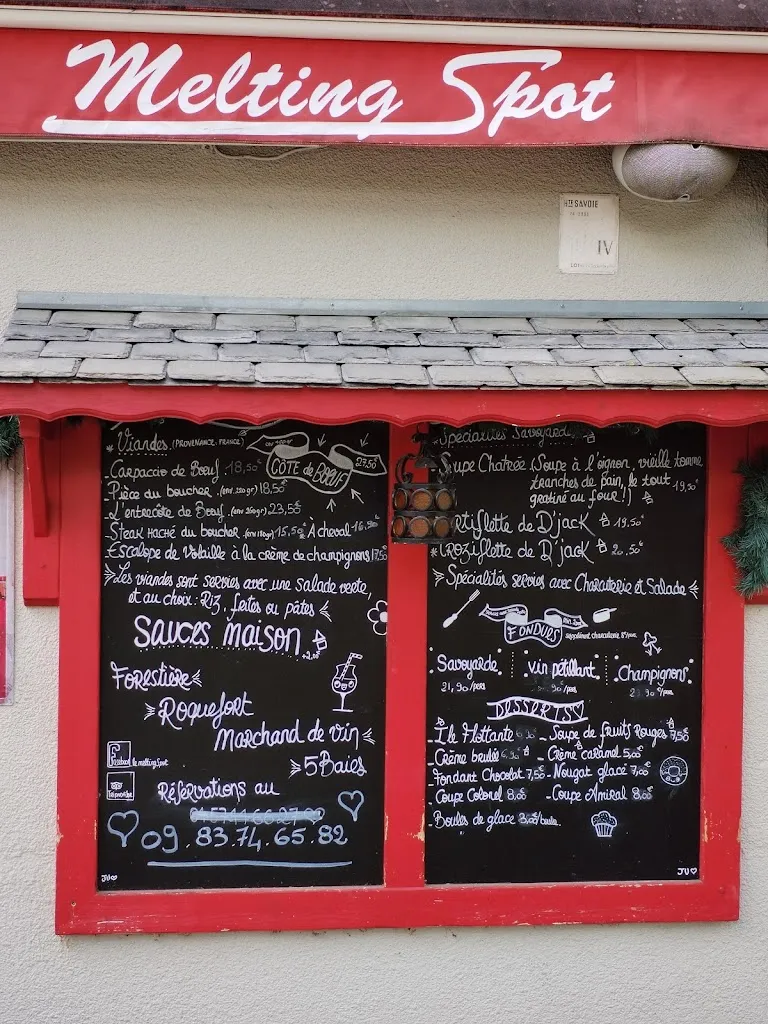 Melting Spot
HTE SAVOIE
IV
Viandes (PROVENANCE: FRANCE)
CÔTE de BŒUF
27,50
Carpaccio de Bœuf 18,50€
Pièce du boucher (env 220gr) 18,50€
L'entrecôte de Bœuf (env 260gr) 23,50€
Steak haché du boucher (env 180gr) 15,50€ A cheval 16,90€
Escalope de Volaille à la crème de champignons 17,50
Les viandes sont servies avec une salade verte,
et au choix: Riz, frites ou pâtes
Sauces maison
+2,00
Forestière
Roquefort
Marchand de vin
5 Baies
Facebook le melting spot
tripadvisor
Réservations au
09.83.74.65.82
JU
Spécialités Savoyard
Soupe Chatrée (Soupe à l'oignon, vieille tomme
tranches de pain, le tout
gratiné au four!) 19,50€
Tartiflette de D'jack 19,50€
Croziflette de D'jack 20,50€
Spécialités servies avec Charcuterie et Salade
FONDUES
supplément charcuterie
Savoyarde vin pétillant Champignons
21,90/pers /pers 23,90€/pers
DESSERTS
Ile Flottante 6,90€ - Soupe de fruits Rouges 7,50€
Crème brulée 6,90€ - Crème caramel 5,00€
Fondant Chocolat 7,50 - Nougat glacé 7,00€
Coupe Colonel 8,00€ - Coupe Amiral 8,00€
Boules de glace /boule
JU